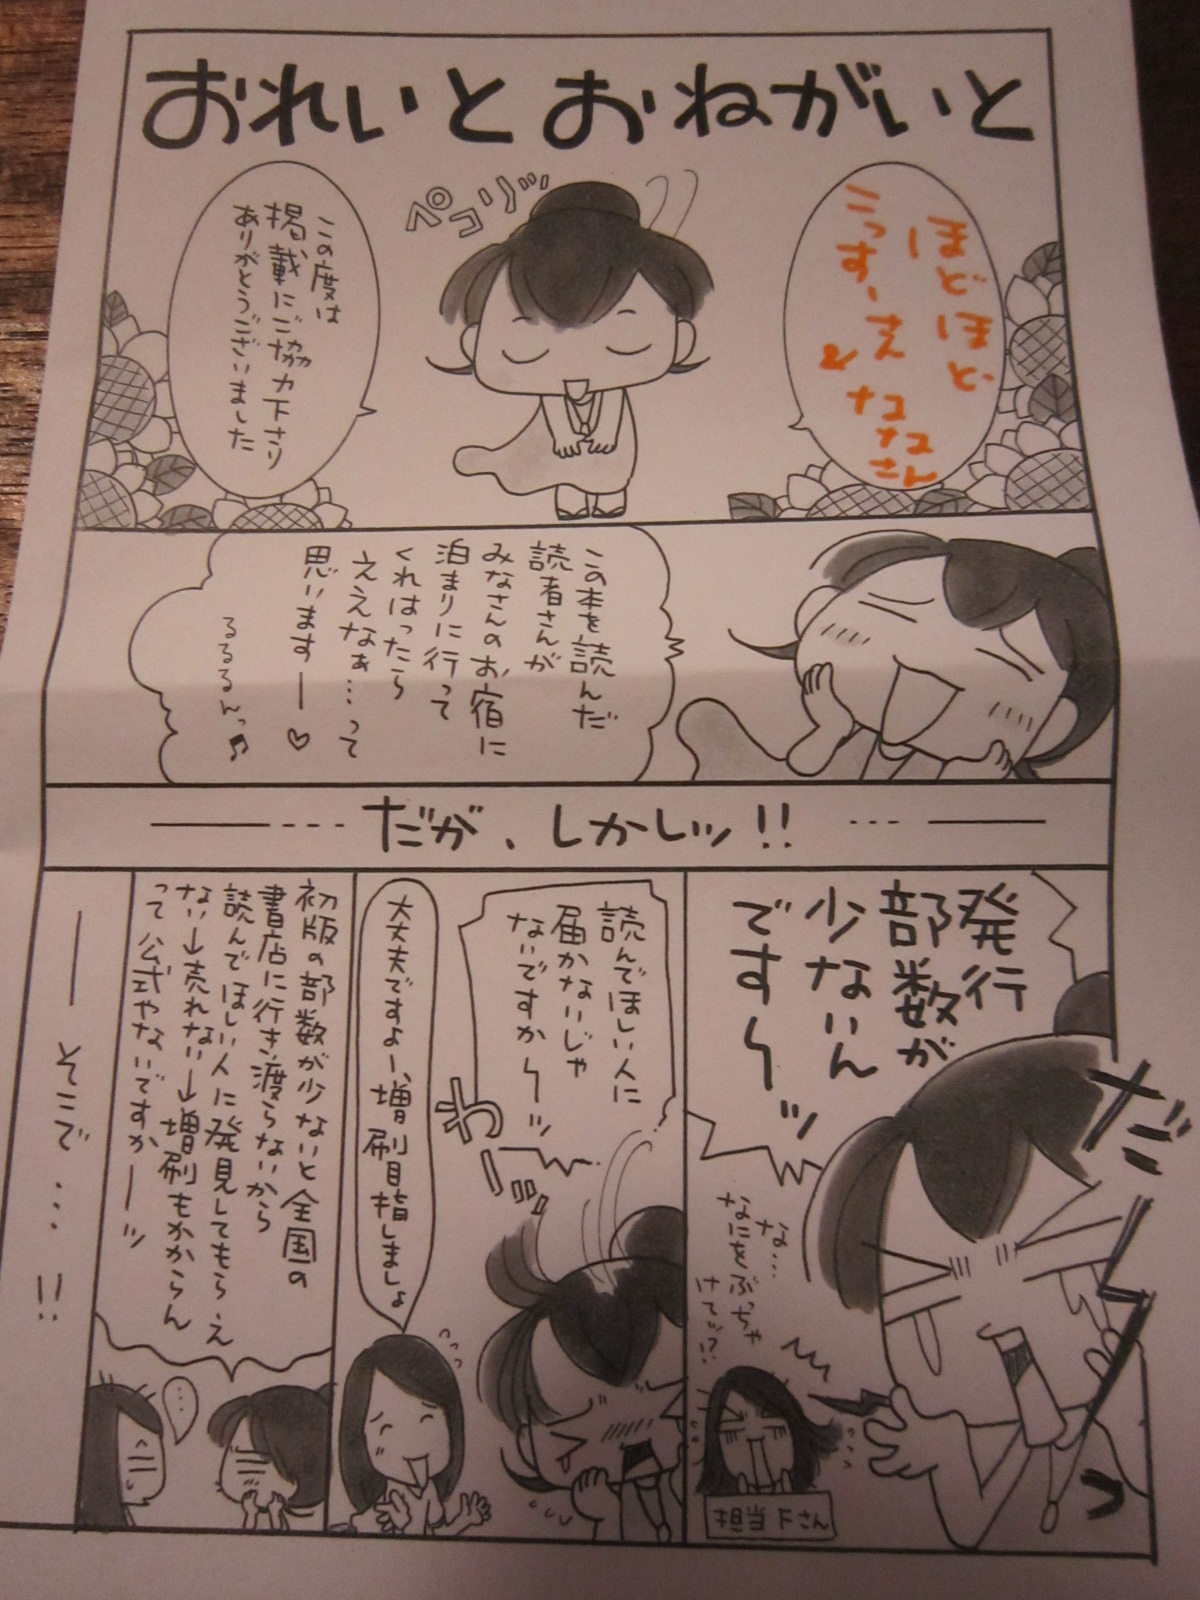 おれいと おねがいと
ほどほど、
こっすーえ
& ナナ
さん
ペコリッ
この度は
掲載にご協力下さり
ありがとうございました
この本を読んだ
読者さんが
みなさんのお宿に
泊まりに行って
くれはったら
ええなぁ…って
思いますー♡
るるるんっ♪
だが、しかしッ!!
発行
部数が
少ないん
です〜ッ
だーッ
な…
なにをぶっちゃ
けてぃ!?
担当Fさん
読んでほしい人に
届かないじゃ
ないですか〜ッ
わーッ
大丈夫ですよー、増刷目指しましょ
初版の部数が少ないと全国の
書店に行き渡らないから
読んでほしい人に発見してもらえ
ない→売れない→増刷もかからん
って公式やないですかーッ
…
そこで…!!